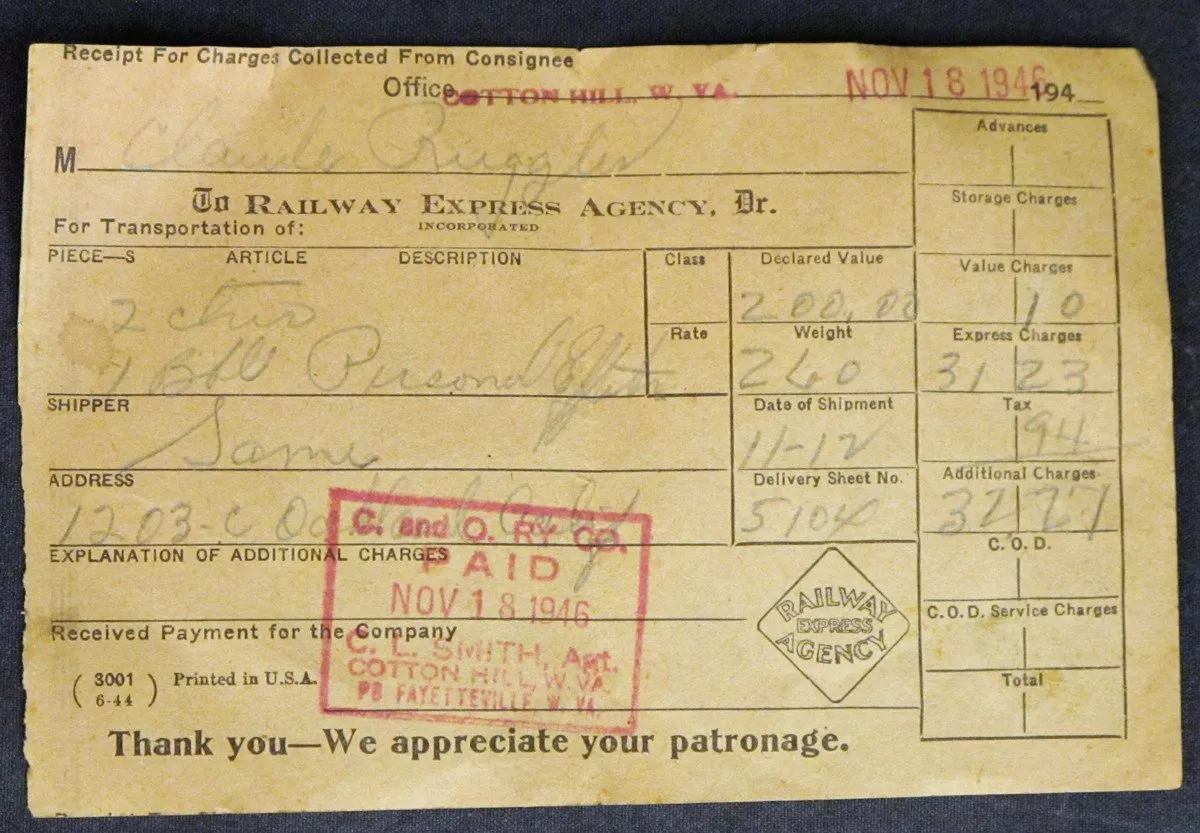 Receipt For Charges Collected From Consignee
Office COTTON HILL, W. VA. NOV 18 1946 194
M Claude Ruggles
To RAILWAY EXPRESS AGENCY, Dr.
INCORPORATED
For Transportation of:
PIECE—S ARTICLE DESCRIPTION
2 ctns
1 Bbl Personal Effects
Class
Rate
Declared Value
200.00
Weight
260
Date of Shipment
11-12
Delivery Sheet No.
5104
SHIPPER
Same
ADDRESS
1203-C Oakland Calif
EXPLANATION OF ADDITIONAL CHARGES
Advances
Storage Charges
Value Charges
10
Express Charges
31 23
Tax
94
Additional Charges
32 27
C. O. D.
C.O.D. Service Charges
Total
C. and O. RY CO.
PAID
NOV 18 1946
C. L. SMITH, Agt.
COTTON HILL, W. VA.
PO FAYETTEVILLE, W. VA.
Received Payment for the Company
RAILWAY
EXPRESS
AGENCY
(3001 6-44) Printed in U.S.A.
Thank you—We appreciate your patronage.